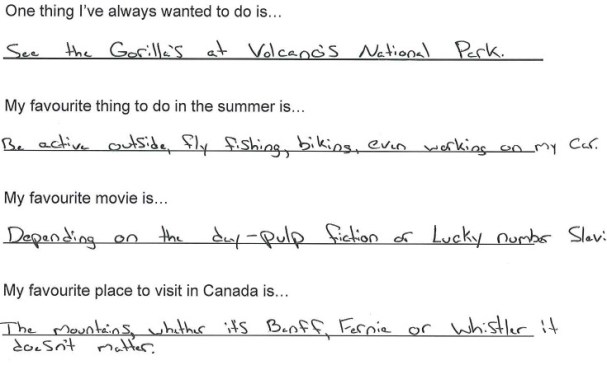 One thing I've always wanted to do is...
See the Gorilla's at Volcano's National Park.
My favourite thing to do in the summer is...
Be active outside, fly fishing, biking, even working on my car.
My favourite movie is...
Depending on the day-pulp fiction or Lucky number Slevi
My favourite place to visit in Canada is...
The mountains, whether it's Banff, Fernie or Whistler it
doesn't matter.